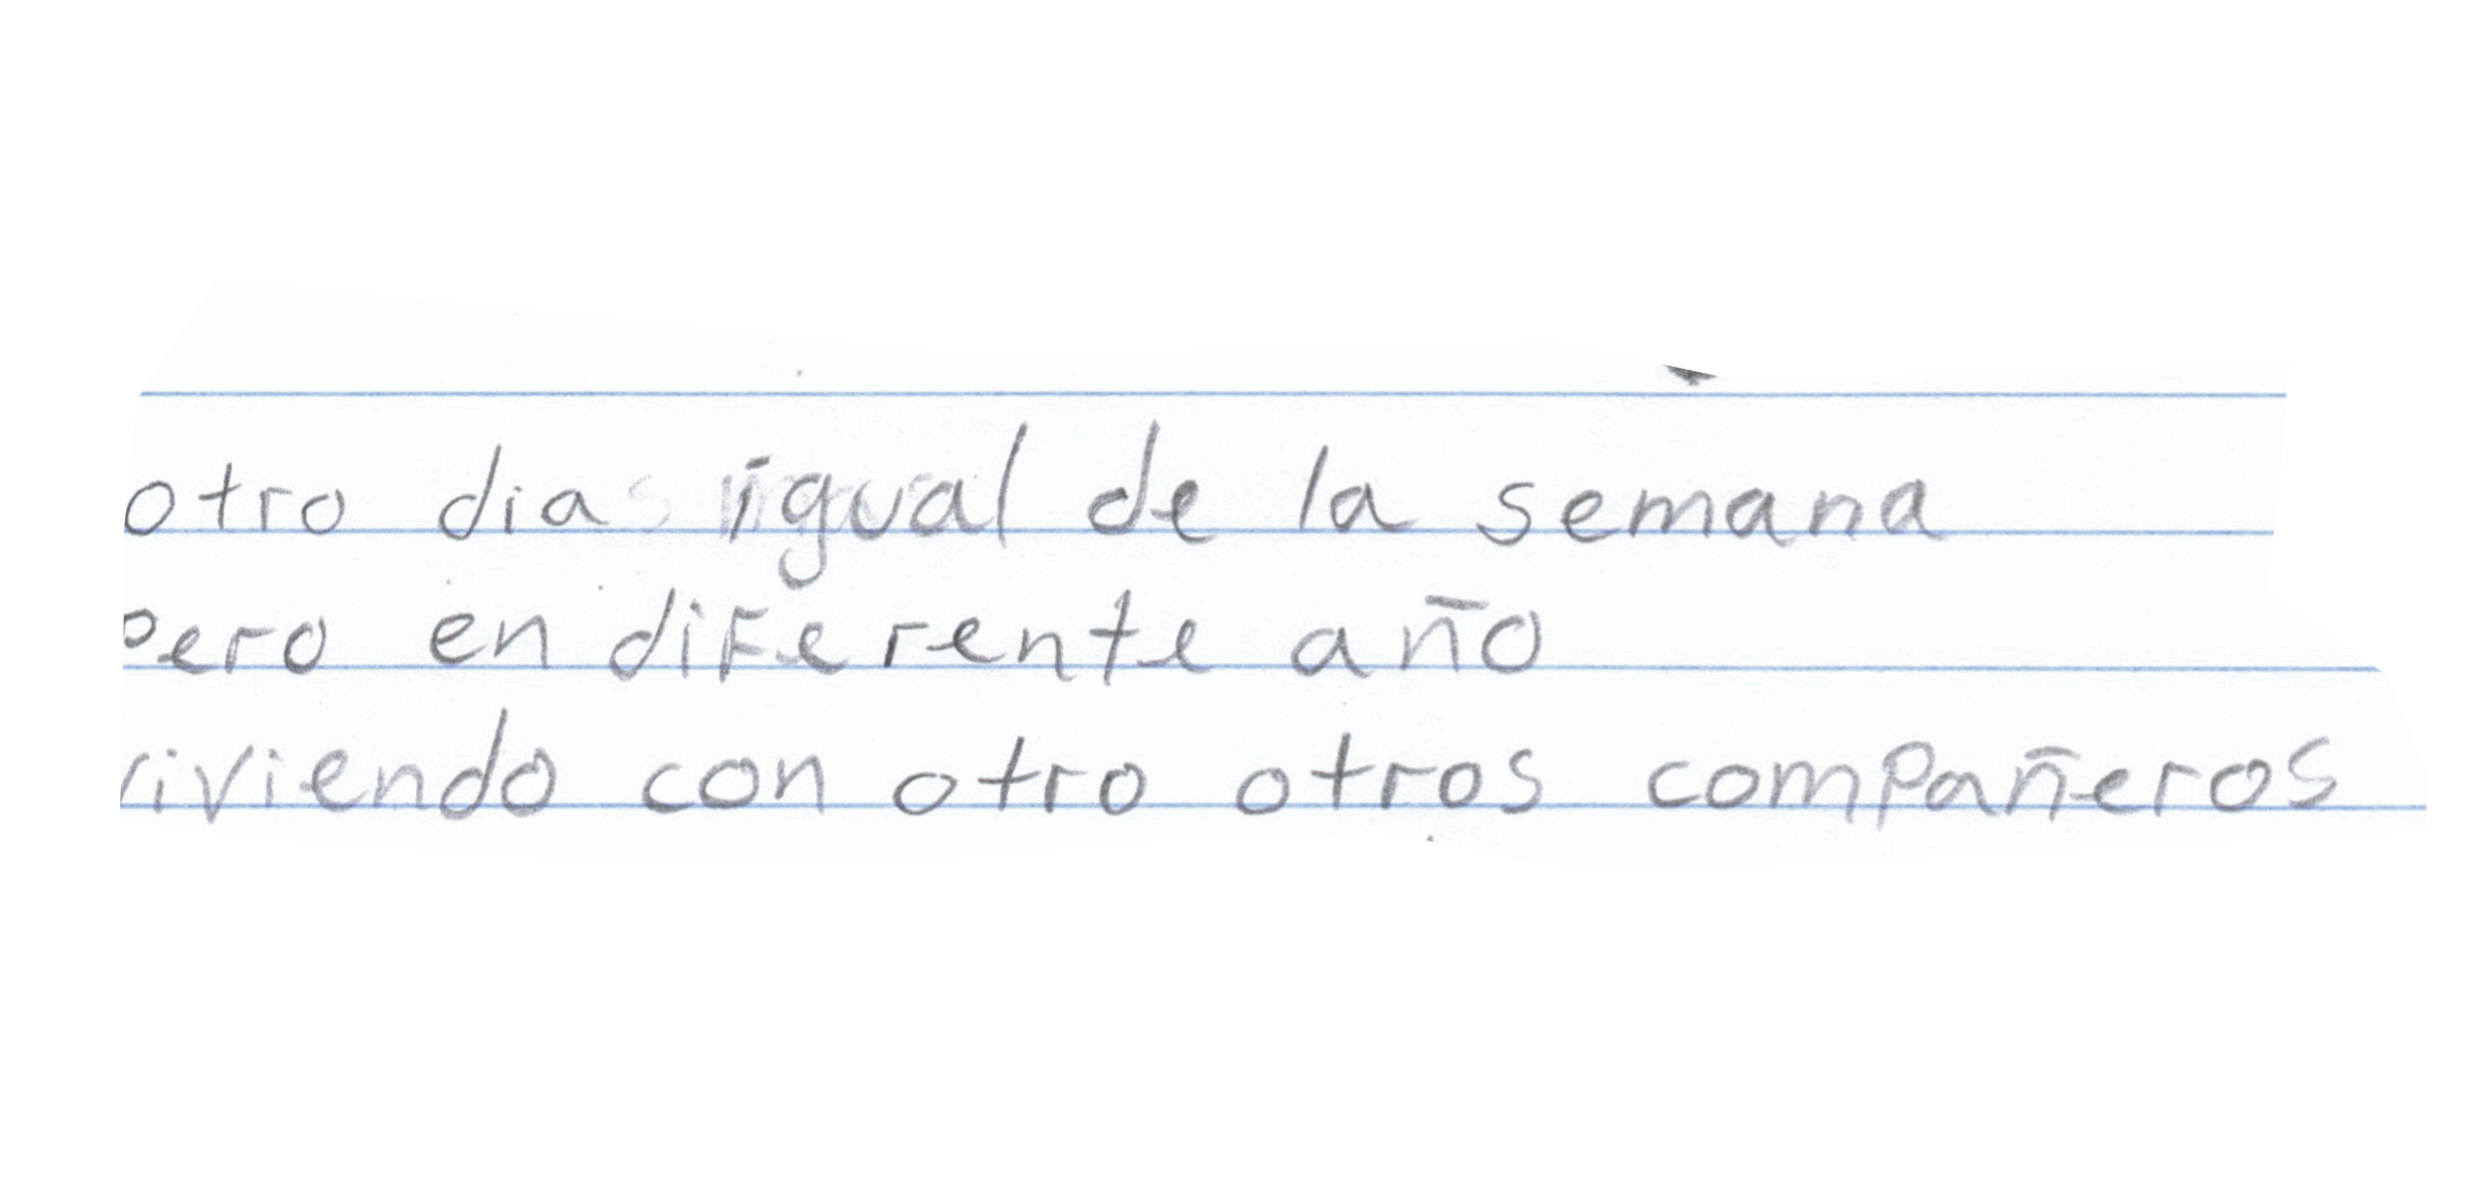 otro dia igual de la semana
pero en diferente año
viviendo con otro otros compañeros